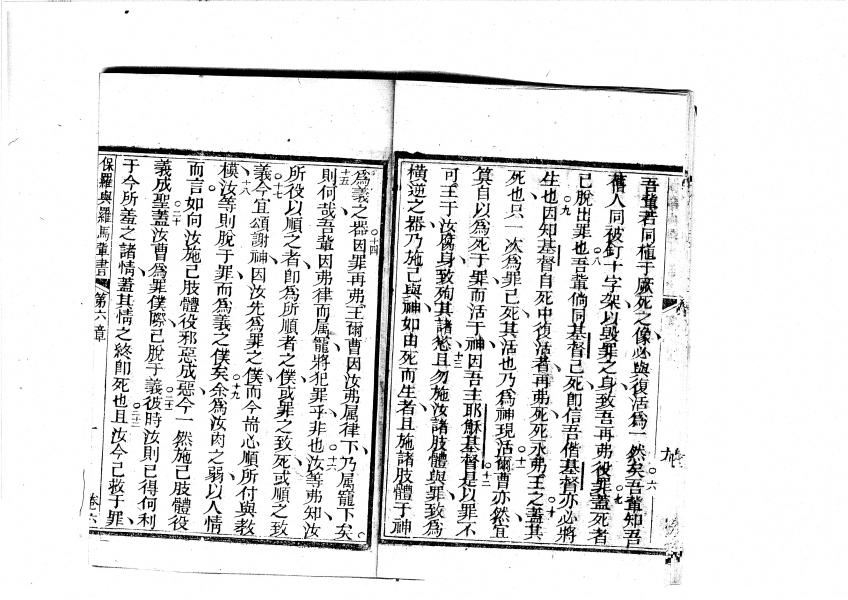 吾輩若同植于厥死之像必與復活為一然矣吾輩知吾
舊人同被釘十字架以毀罪之身致吾再弗役罪蓋死者
己脫出罪也吾輩倘同基督己死即信吾偕基督亦必將
生也因知基督自死中復活者再弗死死永弗王之蓋其
死也只一次為罪己死其活也乃為神現活爾曹亦然宜
算自以為死于罪而活于神因吾主耶穌基督是以罪不
可王于汝腐身致殉其諸慾且勿施汝諸肢體與罪致為
橫逆之器乃施己與神如由死而生者且施諸肢體于神
為義之器因罪再弗王爾曹因汝弗属律下乃属寵下矣
則何哉吾輩因弗律而属寵將犯罪乎非也汝等弗知汝
所役以順之者即為所順者之僕或罪之致死或順之致
義今宜頌謝神因汝先為罪之僕而今耑心順所付與教
模汝等則脫于罪而為義之僕矣余為汝肉之弱以人情
而言如向汝施己肢體役邪惡成惡今一然施己肢體役
義成聖蓋汝曹為罪僕際己脫于義彼時汝則已得何利
于今所羞之諸情蓋其情之終即死也且汝今己救于罪
保羅與羅馬輩書 第六章 卷六